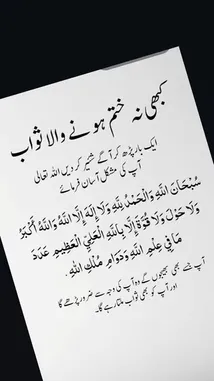 کبھی نہ ختم ہونے والا ثواب
ایک بار پڑھ کر آگے شئیر کر دیں اللہ تعالی
آپ کی مشکل آسان فرمائے
سُبْحَانَ اللهِ وَالْحَمْدُ لِلَّهِ وَلَا إِلَهَ إِلَّا اللهُ وَاللهُ أَكْبَرُ
وَلَا حَوْلَ وَلَا قُوَّةَ إِلَّا بِاللهِ الْعَلِيِّ الْعَظِيمِ عَدَدَ
مَا فِي عِلْمِ اللهِ وَدَوَامِ مُلْكِ اللهِ.
آپ جسے بھی بھیجوں گے وہ آپ کی وجہ سے ضرور پڑھے گا
اور آپ کو بھی ثواب ملتا رہے گا۔